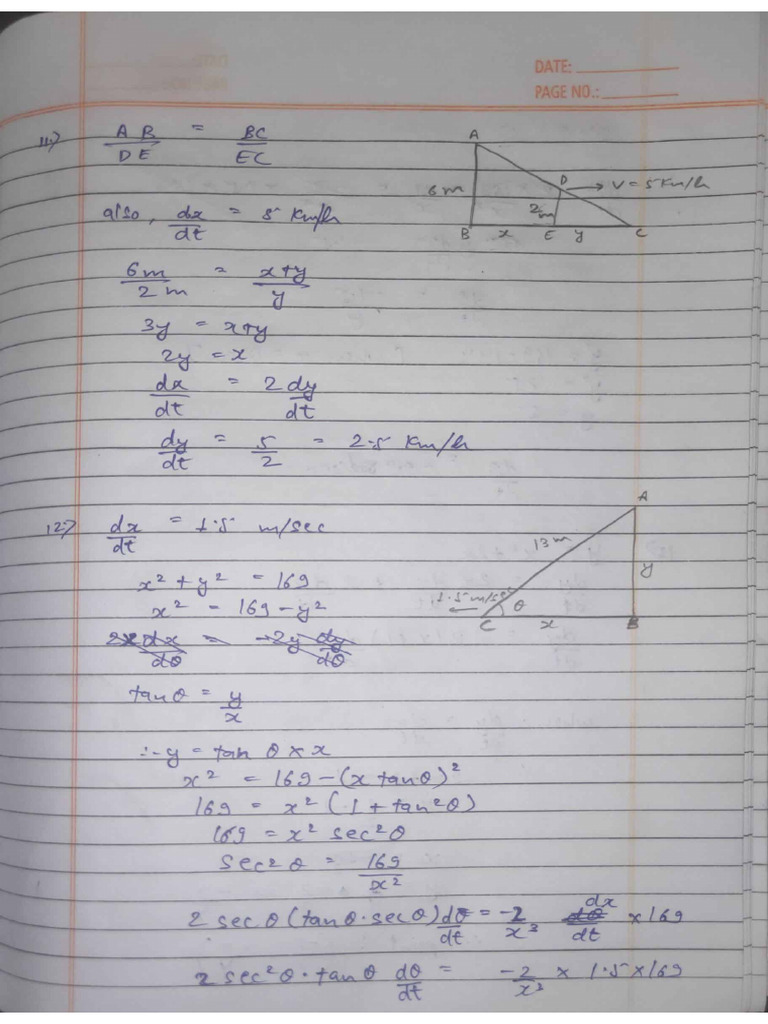 DATE: ________
PAGE NO.: ________
11.) AB/DE = BC/EC
A
D → V = 5 Km/h
6m
2m
B x E y C
also, dx/dt = 5 Km/h
6m/2m = x+y/y
3y = x+y
2y = x
dx/dt = 2 dy/dt
dy/dt = 5/2 = 2.5 Km/h
12.) dx/dt = 1.5 m/sec
A
13m
y
1.5 m/sec
θ
C x B
x² + y² = 169
x² = 169 - y²
2x dx/dθ = -2y dy/dθ
tan θ = y/x
∴ y = tan θ × x
x² = 169 - (x tan θ)²
169 = x² (1 + tan² θ)
169 = x² sec² θ
sec² θ = 169/x²
2 sec θ (tan θ · sec θ) dθ/dt = -2/x³ dx/dt × 169
2 sec² θ · tan θ dθ/dt = -2/x³ × 1.5 × 169